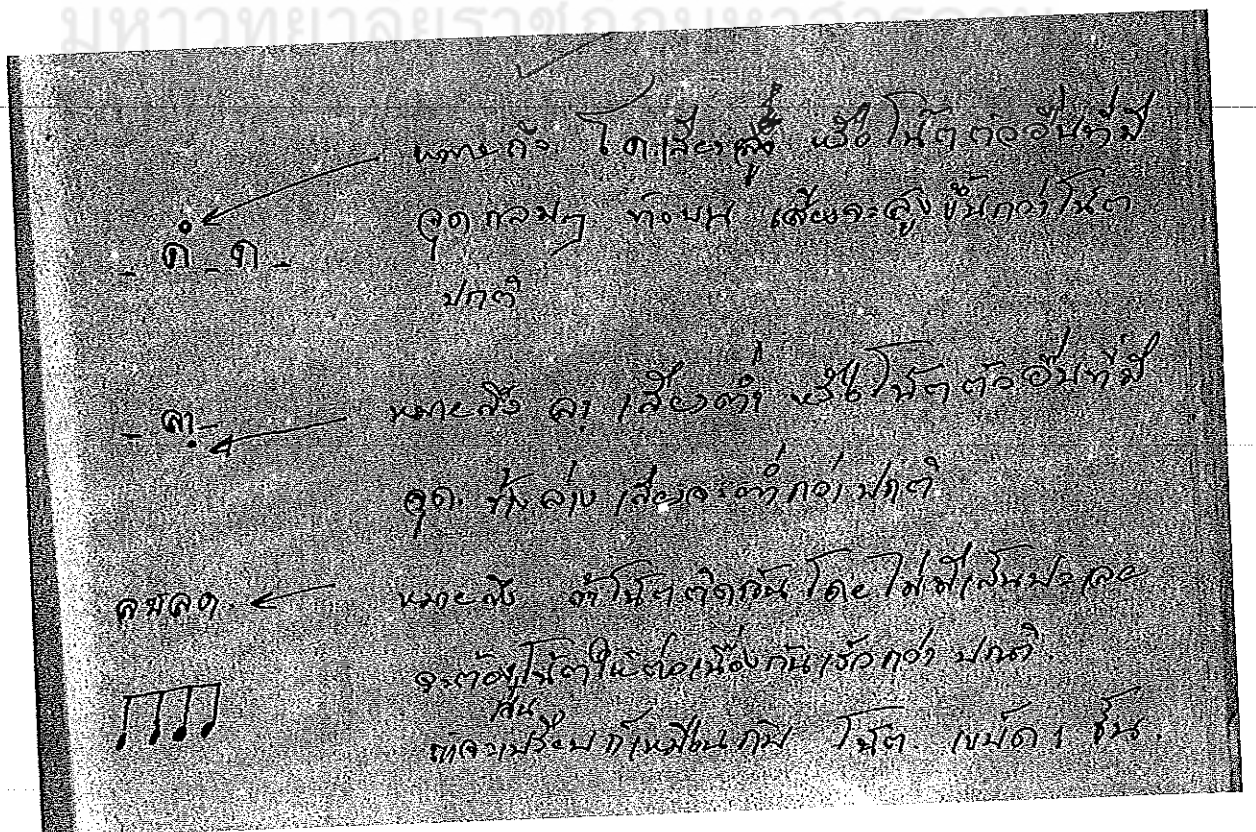 มหาวิทยาลัยราชภัฏมหาสารคาม
หมายถึง โด เสียงสูง หรือโน้ตตัวอื่นที่มี
จุดกลมๆ ข้างบน เสียงจะสูงขึ้นกว่าโน้ต
- ดํ - ด -
ปกติ
- ลฺ - หมายถึง ลฺ เสียงต่ำ หรือโน้ตตัวอื่นที่มี
จุด ข้างล่าง เสียงจะต่ำกว่าปกติ
หมายถึง ถ้าโน้ตติดกันโดยไม่มีเส้นประเลย
จะต้องโน้ตให้ต่อเนื่องกันเร็วกว่าปกติ
เล่น
ถ้าจะเปรียบก็เหมือนกับ โน้ต เขบ็ต 1 ชั้น.